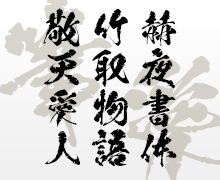 赫夜書体
竹取物語
敬天愛人